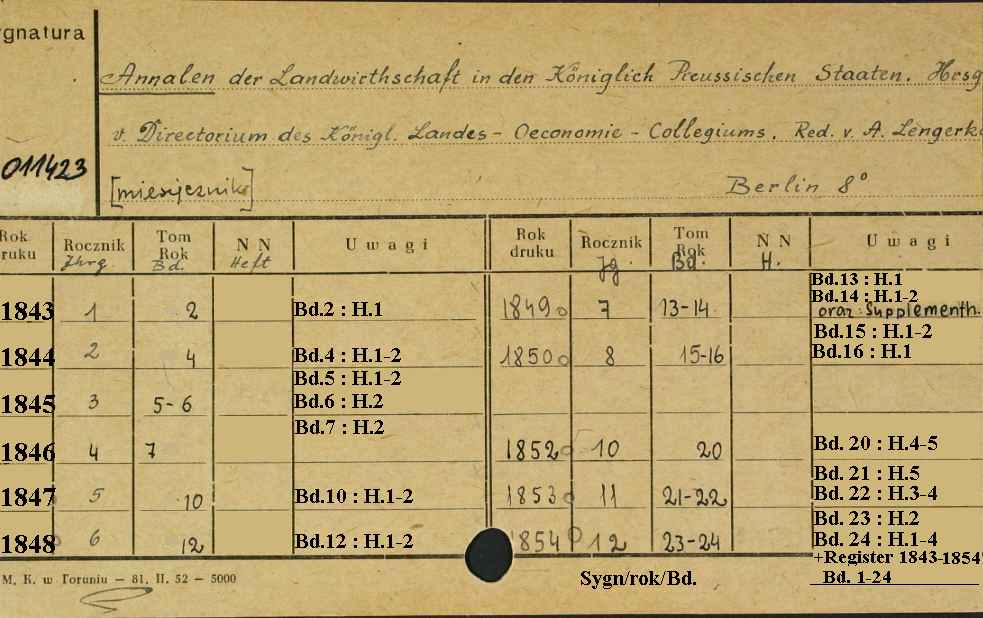 ygnatura
Annalen der Landwirthschaft in den Königlich Preussischen Staaten. Hrsg
v. Directorium des Königl. Landes - Oeconomie - Collegiums. Red. v. A. Lengerke
011423
[miesięcznik]
Berlin 8°
Rok druku Rocznik Jhrg. Tom Rok Bd. N N Heft Uwagi Rok druku Rocznik Jg. Tom Rok Bd. N N H. Uwagi
1843 1 2 Bd.2 : H.1 1849 7 13-14 Bd.13 : H.1
Bd.14 : H.1-2
oraz Supplementh.
1844 2 4 Bd.4 : H.1-2 1850 8 15-16 Bd.15 : H.1-2
Bd.16 : H.1
1845 3 5-6 Bd.5 : H.1-2
Bd.6 : H.2
1846 4 7 Bd.7 : H.2 1852 10 20 Bd. 20 : H.4-5
1847 5 10 Bd.10 : H.1-2 1853 11 21-22 Bd. 21 : H.5
Bd. 22 : H.3-4
1848 6 12 Bd.12 : H.1-2 1854 12 23-24 Bd. 23 : H.2
Bd. 24 : H.1-4
+Register 1843-1854
Bd. 1-24
M. K. w Toruniu — 81, II. 52 — 5000
Sygn/rok/Bd.